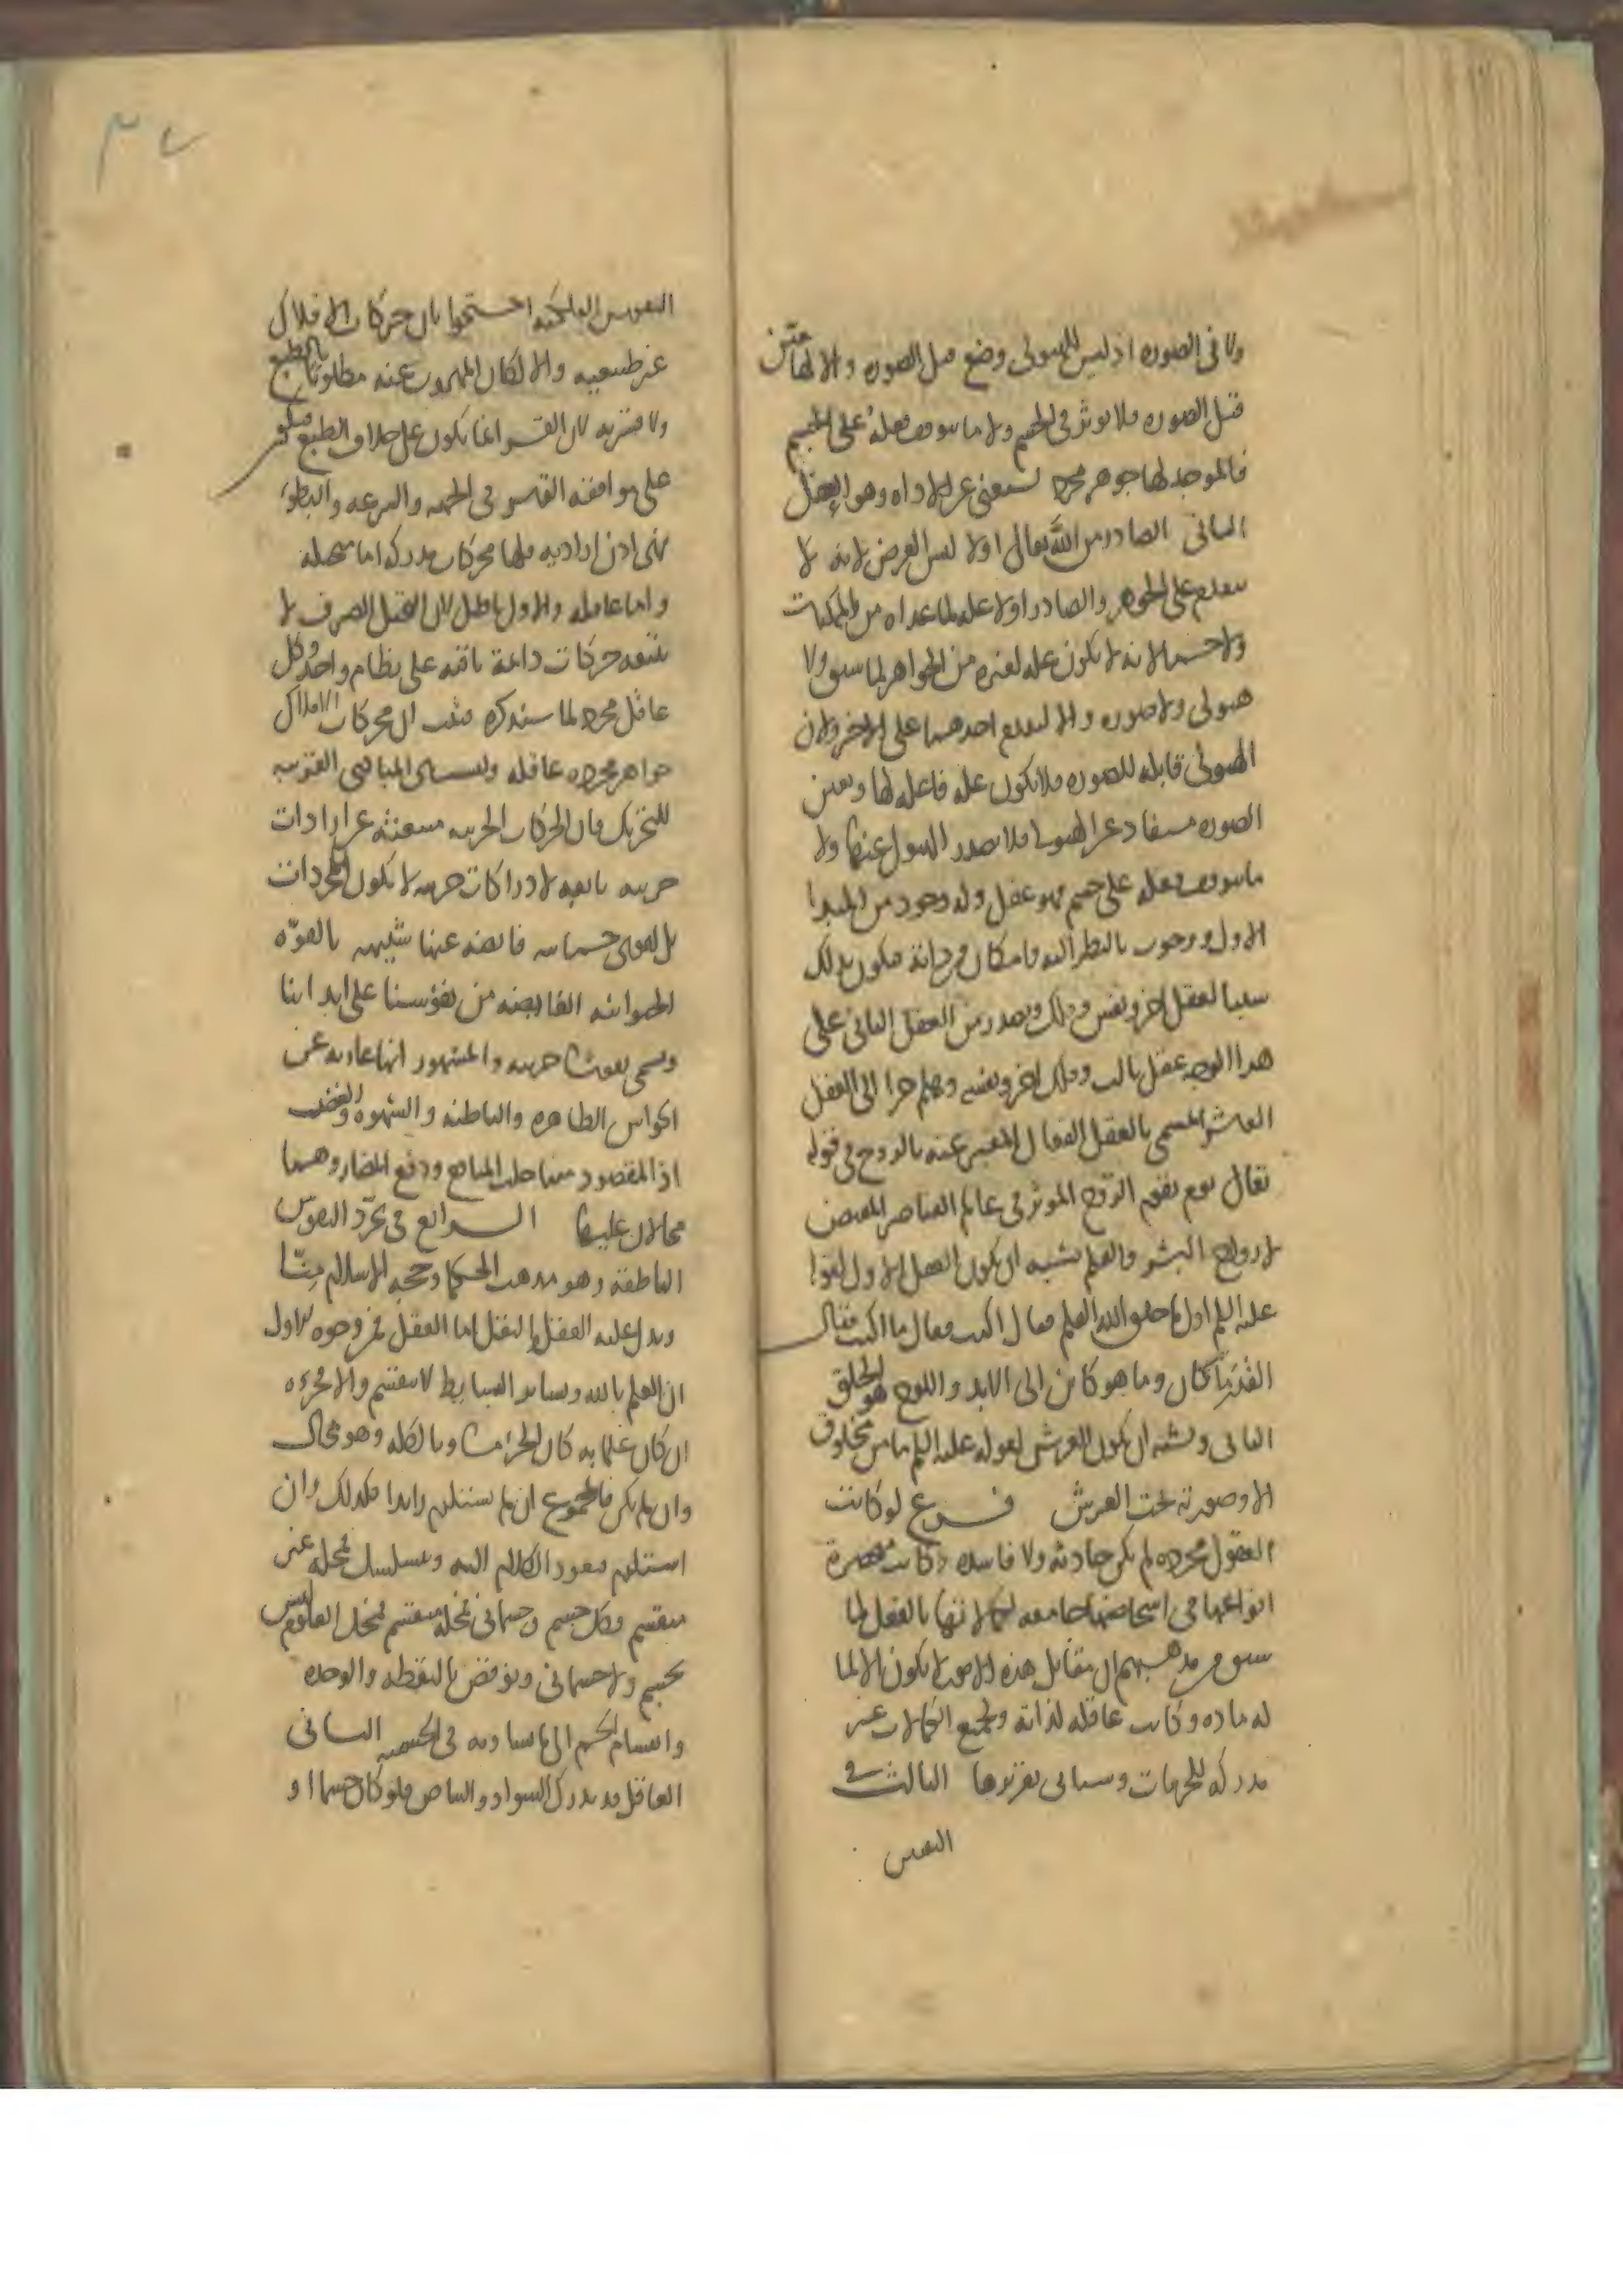 ولا فى الصوره اذ ليس للهيولى وضع قبل الصوره والا لها تعين
قبل الصوره فلا يوثر فى الجسم ولا ما يتوقف فعله على الجسم
فالموجد لها جوهر مجرد يستغنى عن الاداه وهو العقل
الثانى الصادر من الله تعالى اولا ليس العرض لانه لا
يتقدم على الجوهر والصادر اولا عله لما عداه من الممكنات
ولا جسما لانه لا يكون عله لغيره من الجواهر لما سبق ولا
هيولى ولا صوره والا لتقدم احدهما على الاخر ولان
الهيولى قابله للصوره فلا تكون عله فاعله لها وتعين
الصوره مستفاد عن الهيولى فلا تصدر الهيولى عنها ولا
ما يتوقف فعله على جسم فهو عقل وله وجود من المبدا
الاول ووجوب بالنظر اليه وامكان من ذاته فيكون بذلك
سببا لعقل اخر ونفس وفلك ويصدر من العقل الثانى على
هذا الوجه عقل ثالث وفلك اخر ونفسه وهلم جرا الى العقل
العاشر المسمى بالعقل الفعال المعبر عنه بالروح فى قوله
تعالى يوم يقوم الروح الموثر فى عالم العناصر المفيض
لارواح البشر والقلم يشبه ان يكون العقل الاول لقوله
عليه السلم اول ما خلق الله القلم فقال اكتب فقال ما اكتب فقال
القدر ما كان وما هو كائن الى الابد واللوح هو الخلق
الثانى ويشبه ان يكون العرش لقوله عليه السلم ما من مخلوق
الا وصورته تحت العرش فرع لو كانت
العقول مجرده لم تكن حادثه ولا فاسده وكانت منحصرة
انواعها فى اشخاصها جامعه لكمالاتها بالفعل لما
سبق من مذهبهم ان مقابل هذه الامور لا يكون الا لما
له ماده وكانت عاقله لذاته ولجميع الكمالات غير
مدركه للجزيات وسياتى تقريرها الثالث فى
النفس
النفوس الفلكيه احتجوا بان حركات الافلاك
غير طبيعيه والا لكان المهروب عنه مطلوبا بالطبع
ولا قسريه لان القسر انما يكون على خلاف الطبع فيكون
على موافقه القاسر فى الجهه والسرعه والبطو
فهى اذن اراديه فلها محركات مدركه اما متخيله
واما عاقله والاول باطل لان التخيل الصرف لا
يتبعه حركات دائمة باقيه على نظام واحد وكل
عاقل مجرد لما سنذكره فثبت ان محركات الافلاك
جواهر مجرده عاقله وليست المبادى القريبه
للتحريك فان الحركات الجزييه منبعثه عن ارادات
جزييه تابعه لادراكات جزييه لا تكون للمجردات
بل لقوى جسمانيه فائضه عنها شبيهه بالقوه
الحيوانيه الفايضه من نفوسنا على ابداننا
وتسمى نفوسا جزييه والمشهور انها عاريه عن
الحواس الظاهره والباطنه والشهوه والغضب
اذ المقصود منها جلب المنافع ودفع المضار وهما
محالان عليها الرابع فى تجرد النفوس
الناطقه وهو مذهب الحكما وحجه الاسلام منا
ويدل عليه العقل والنقل اما العقل فمن وجوه الاول
ان العلم بالله وساير البسايط لا ينقسم والا فجزوه
ان كان علما به كان الجزء مساويا لكله وهو محال
وان لم يكن فالمجموع ان لم يستلزم زايدا فكذلك وان
استلزم فيعود الكلام اليه ويتسلسل فمحله غير
منقسم وكل جسم وجسمانى فمحله منقسم فمحل العلوم ليس
بجسم ولا جسمانى ونوقض بالنقطه والوحده
وانقسام الجسم الى ما يساويه فى الجسميه الثانى
العاقل قد يدرك السواد والبياض فلو كان جسما او